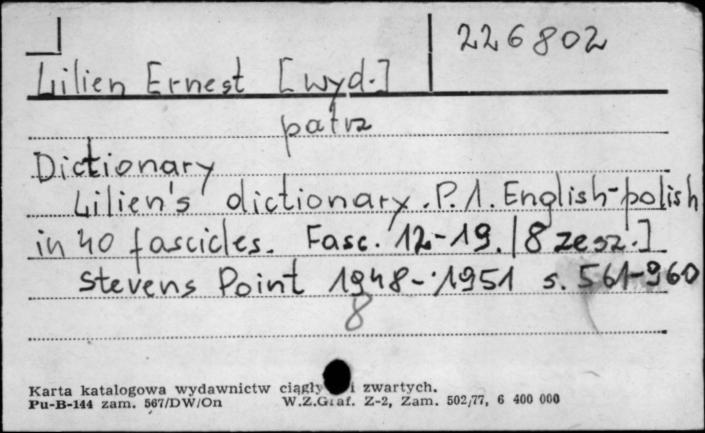 226802
Lilien Ernest [wyd.]
patrz
Dictionary
Lilien's dictionary. P. 1. English-polish
in 40 fascicles. Fasc. 12-19. [8 zesz.]
Stevens Point 1948-1951 s. 561-960
8
Karta katalogowa wydawnictw ciągły i zwartych.
Pu-B-144 zam. 567/DW/On W.Z.Graf. Z-2, Zam. 502/77, 6 400 000